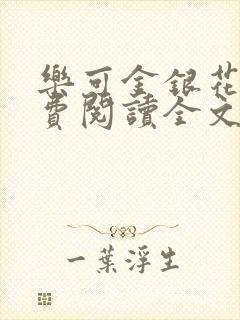 樂可金銀花
費閱讀全文
一葉浮生